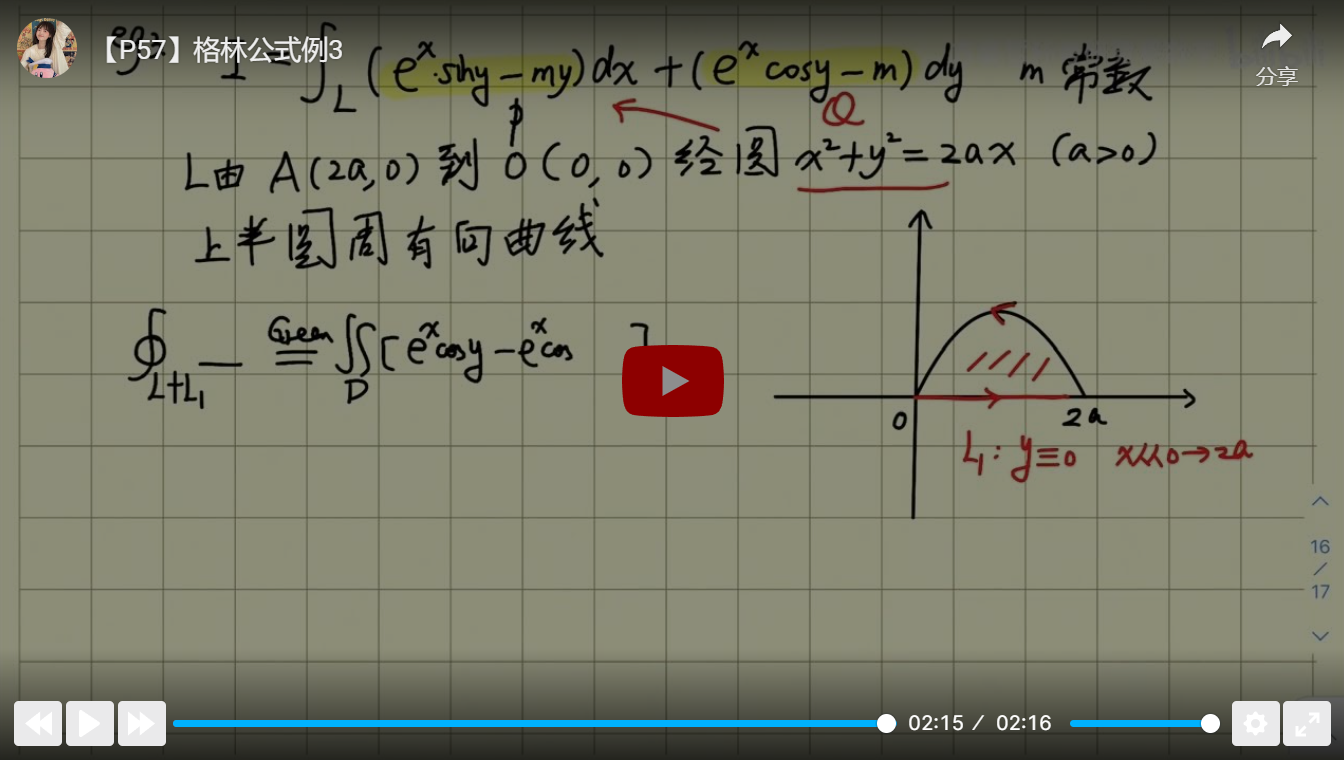 【P57】格林公式例3
分享
I = ∫L (e^x·siny − my)dx + (e^x cosy − m) dy m 常数
P Q
L由 A(2a,0) 到 O(0,0) 经圆 x²+y²=2ax (a>0)
上半圆周有向曲线
∮L+L₁ — Green ═ ∬D [e^x cosy − e^x cos ]
0 2a
L₁: y≡0 x从0→2a
16
/
17
02:15 / 02:16